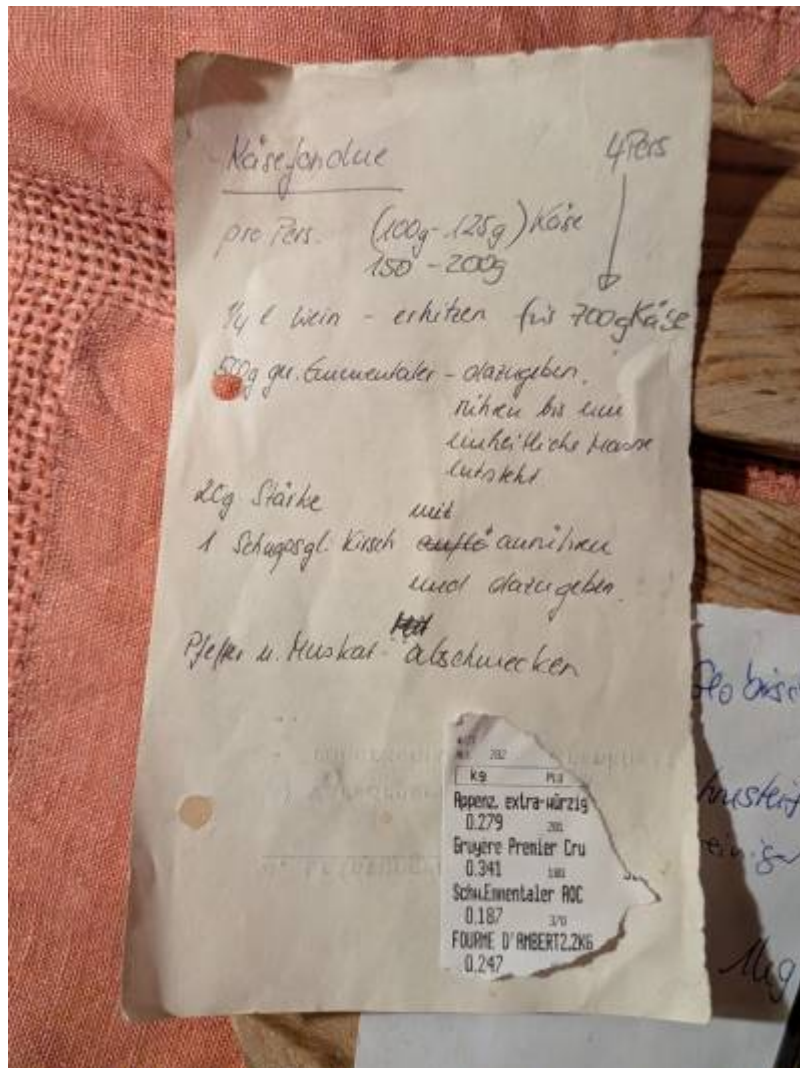 Käsefondue 4 Pers
pro Pers. (100g-125g) Käse
150-200g
1/4 l Wein - erhitzen für 700g Käse
500g ger. Emmentaler - dazugeben.
rühren bis eine
einheitliche Masse
entsteht
20g Stärke mit
1 Schnapsgl. Kirsch anrühren
und dazugeben.
Pfeffer u. Muskat - abschmecken
202
kg
Appenz. extra-würzig
0.279
Gruyère Premier Cru
0.341
Schw.Emmentaler AOC
0.187 370
FOURME D'AMBERT2.2KG
0.247
1kg